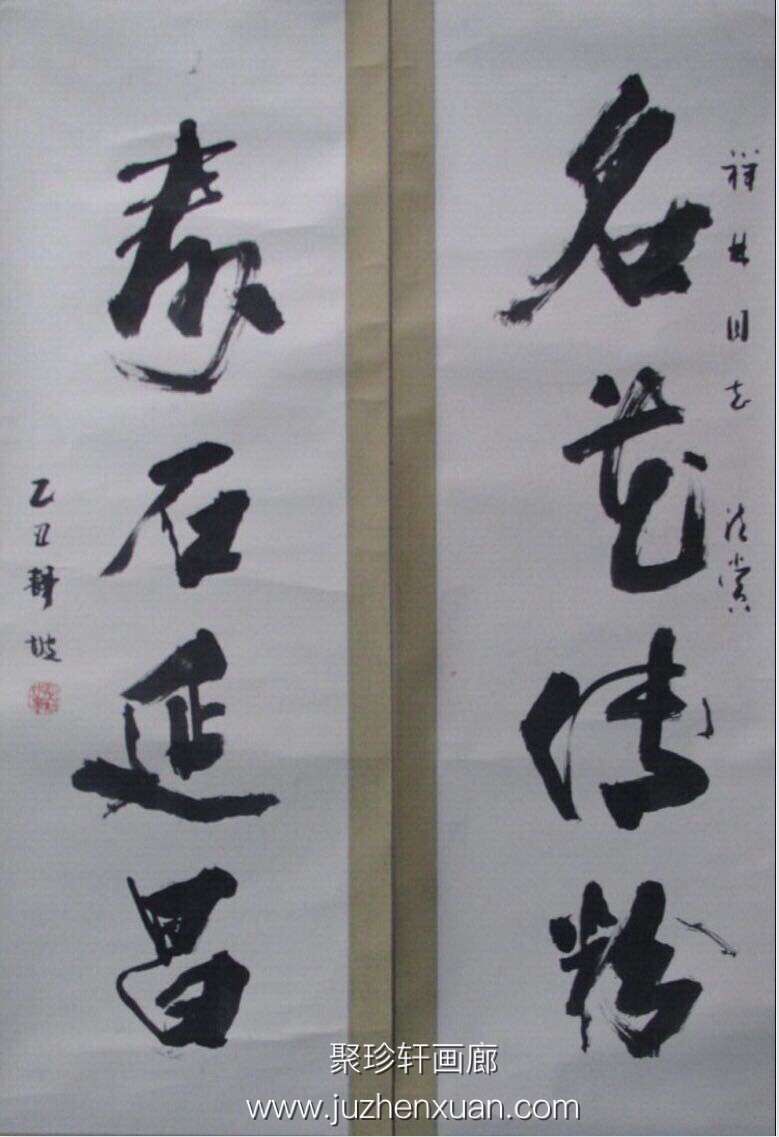 祥林同志 清赏
名花傅粉
寿石延昌
乙丑静坡
聚珍轩画廊
www.juzhenxuan.com